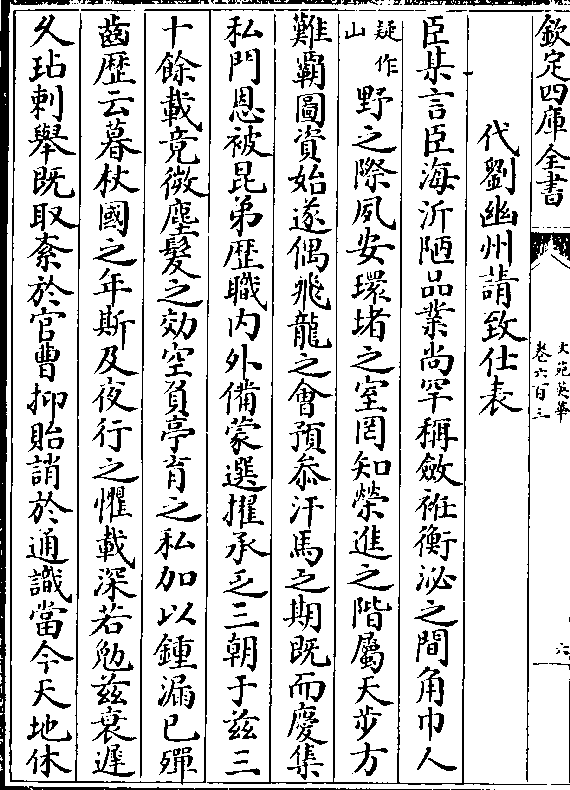 欽定四庫全書
文苑英華
卷六百三
六
代劉幽州請致仕表
臣某言臣海沂陋品業尚罕稱斂袵衡泌之間角巾人
疑作山野之際夙安環堵之室罔知榮進之階屬天步方
難覇圖資始遂偶飛龍之會預叅汗馬之期既而慶集
私門恩被昆弟歴職内外備蒙選擢承乏三朝于兹三
十餘載竟微塵髮之効空負亭育之私加以鍾漏已殫
齒歴云暮杖國之年斯及夜行之懼載深若勉兹衰遲
乆玷刺舉既取紊於官曹抑貽誚於通識當今天地休